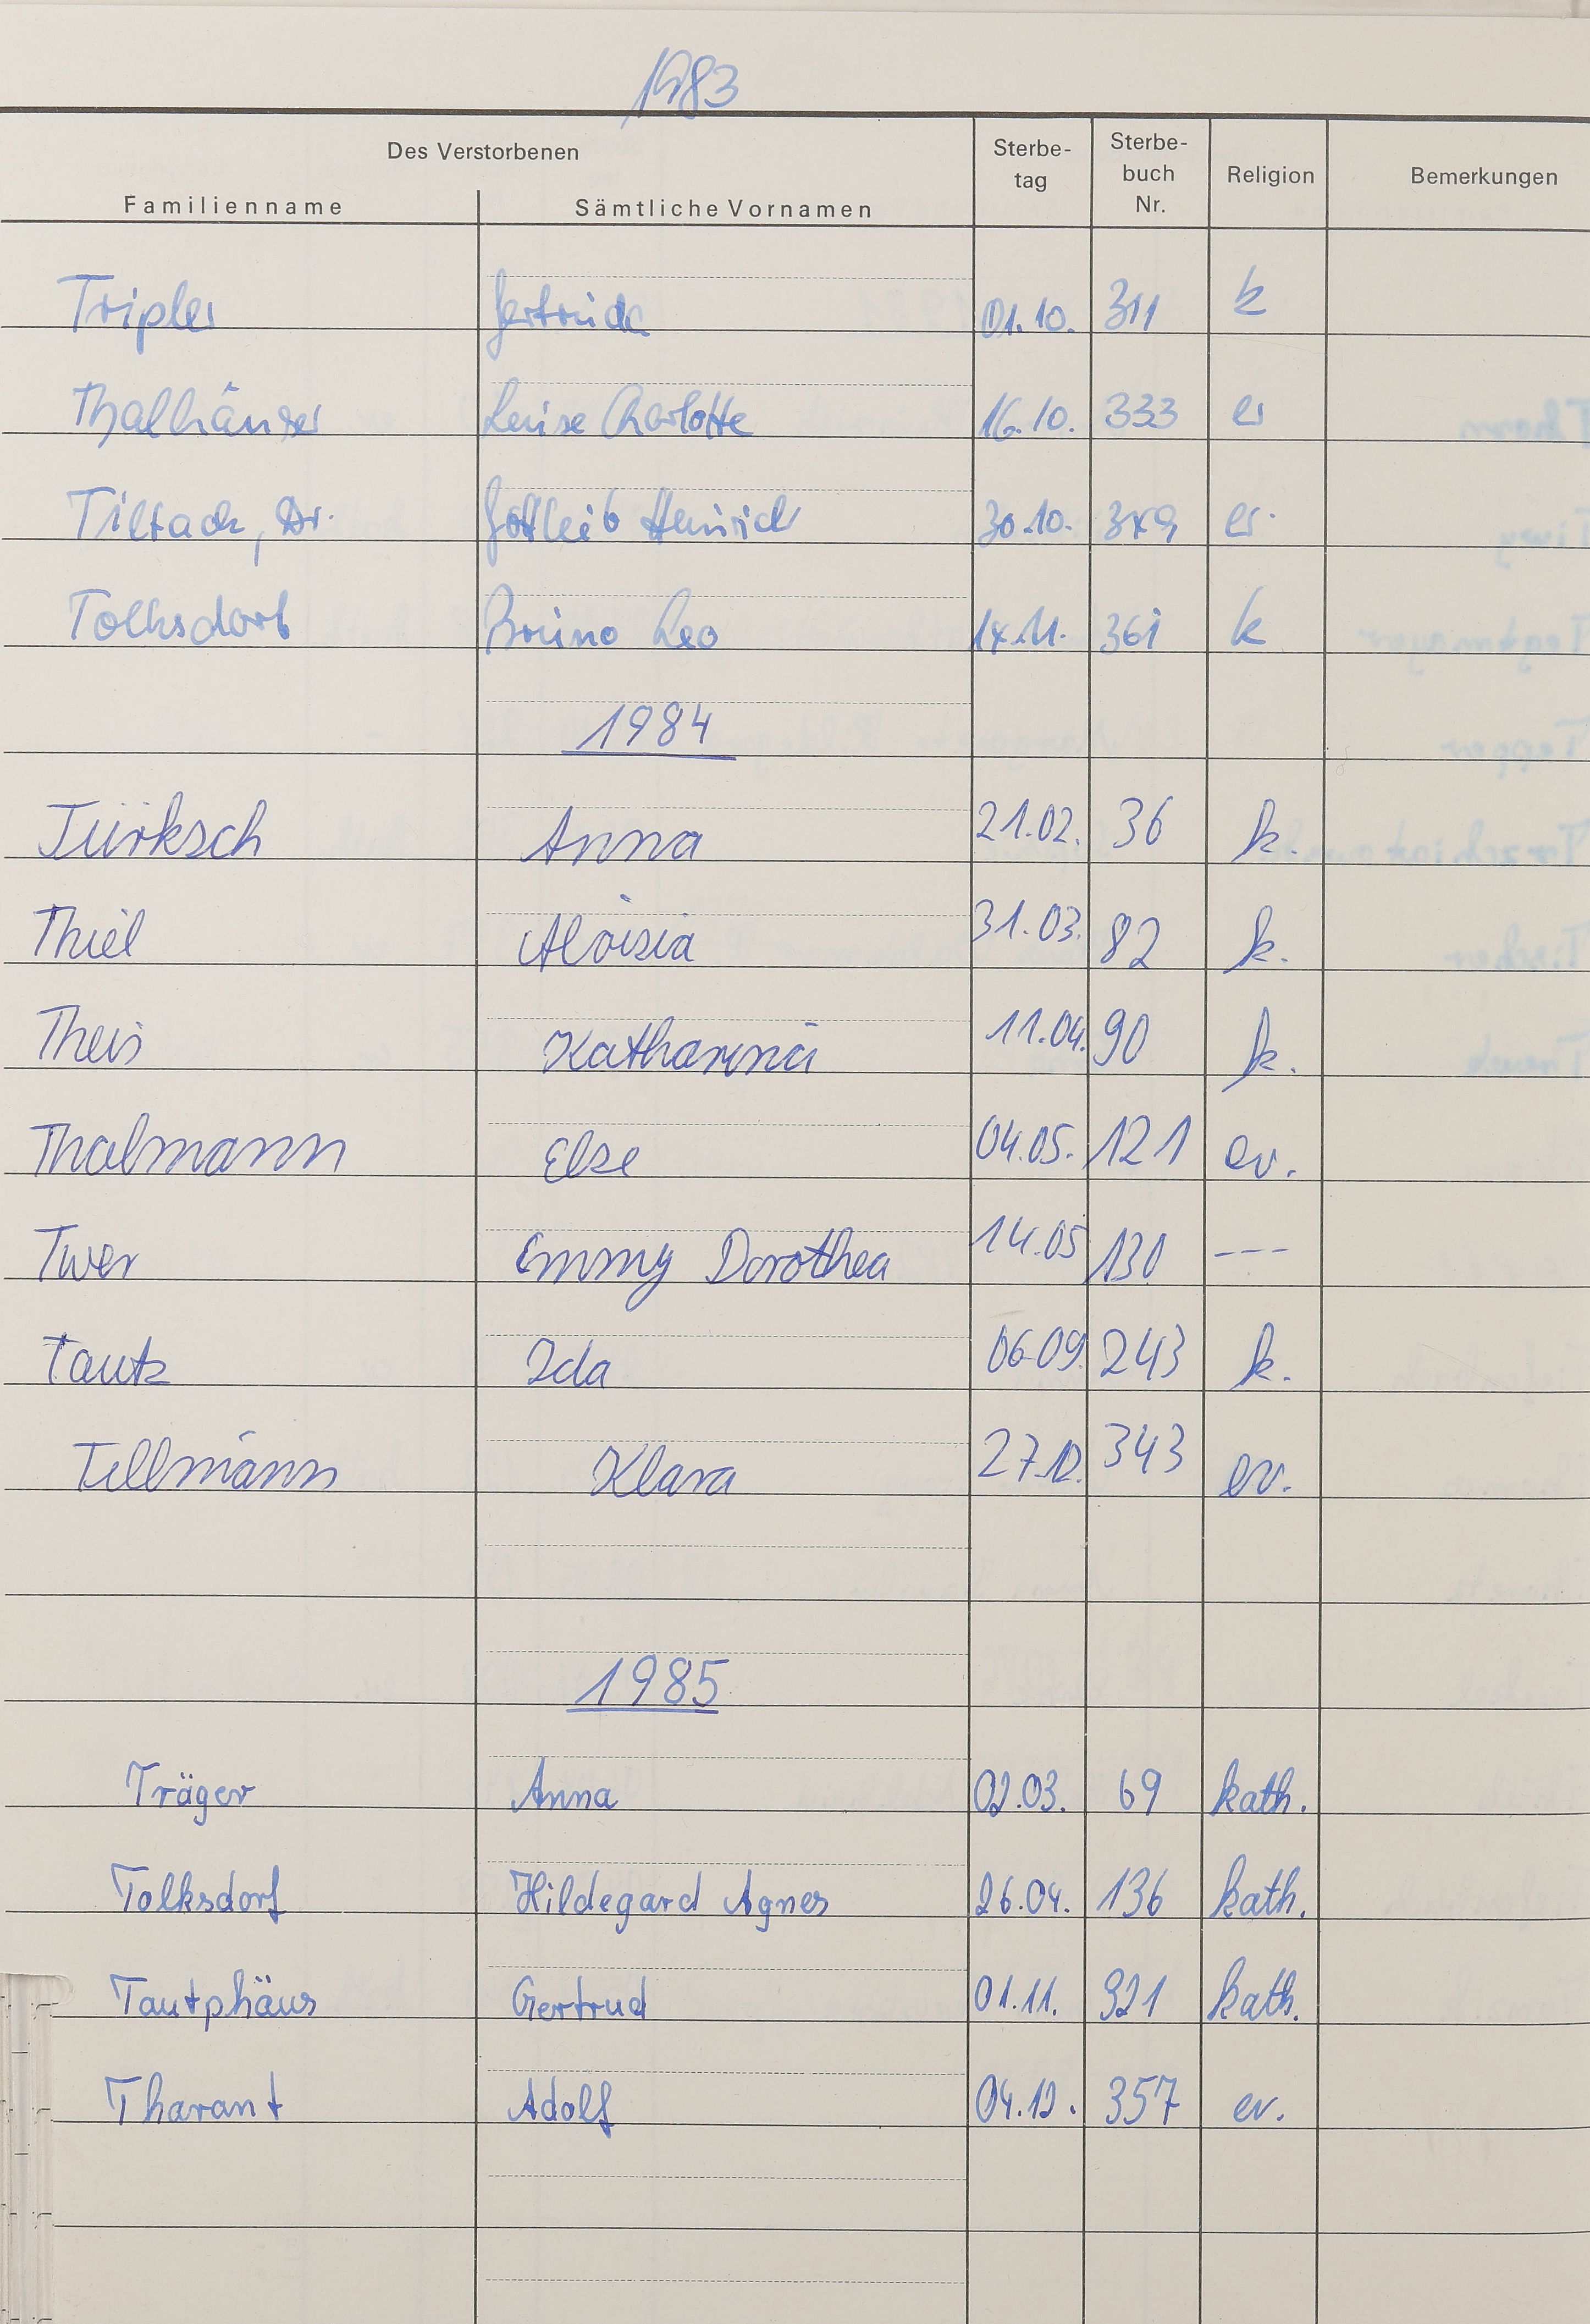 1983
Des Verstorbenen
Familienname Sämtliche Vornamen Sterbe-tag Sterbe-buch Nr. Religion Bemerkungen
Tripler Gertrude 01.10. 311 k
Thalhäuser Luise Charlotte 16.10. 333 ev
Dr. Gottleib Heinrich 30.10. 349 ev.
Tolksdorf Bruno Leo 14.11. 361 k
1984
Türksch Anna 21.02. 36 k.
Thiel Aloisia 31.03. 82 k.
Theis Katharina 11.04. 90 k.
Thalmann Else 04.05. 121 ev.
Twer Emmy Dorothea 14.05 130 ---
Tautz Ida 06.09. 243 k.
Tillmann Klara 27.12. 343 ev.
1985
Träger Anna 02.03. 69 kath.
Tolksdorf Hildegard Agnes 26.04. 136 kath.
Tautphäus Gertrud 01.11. 321 kath.
Tharant Adolf 04.12. 357 ev.